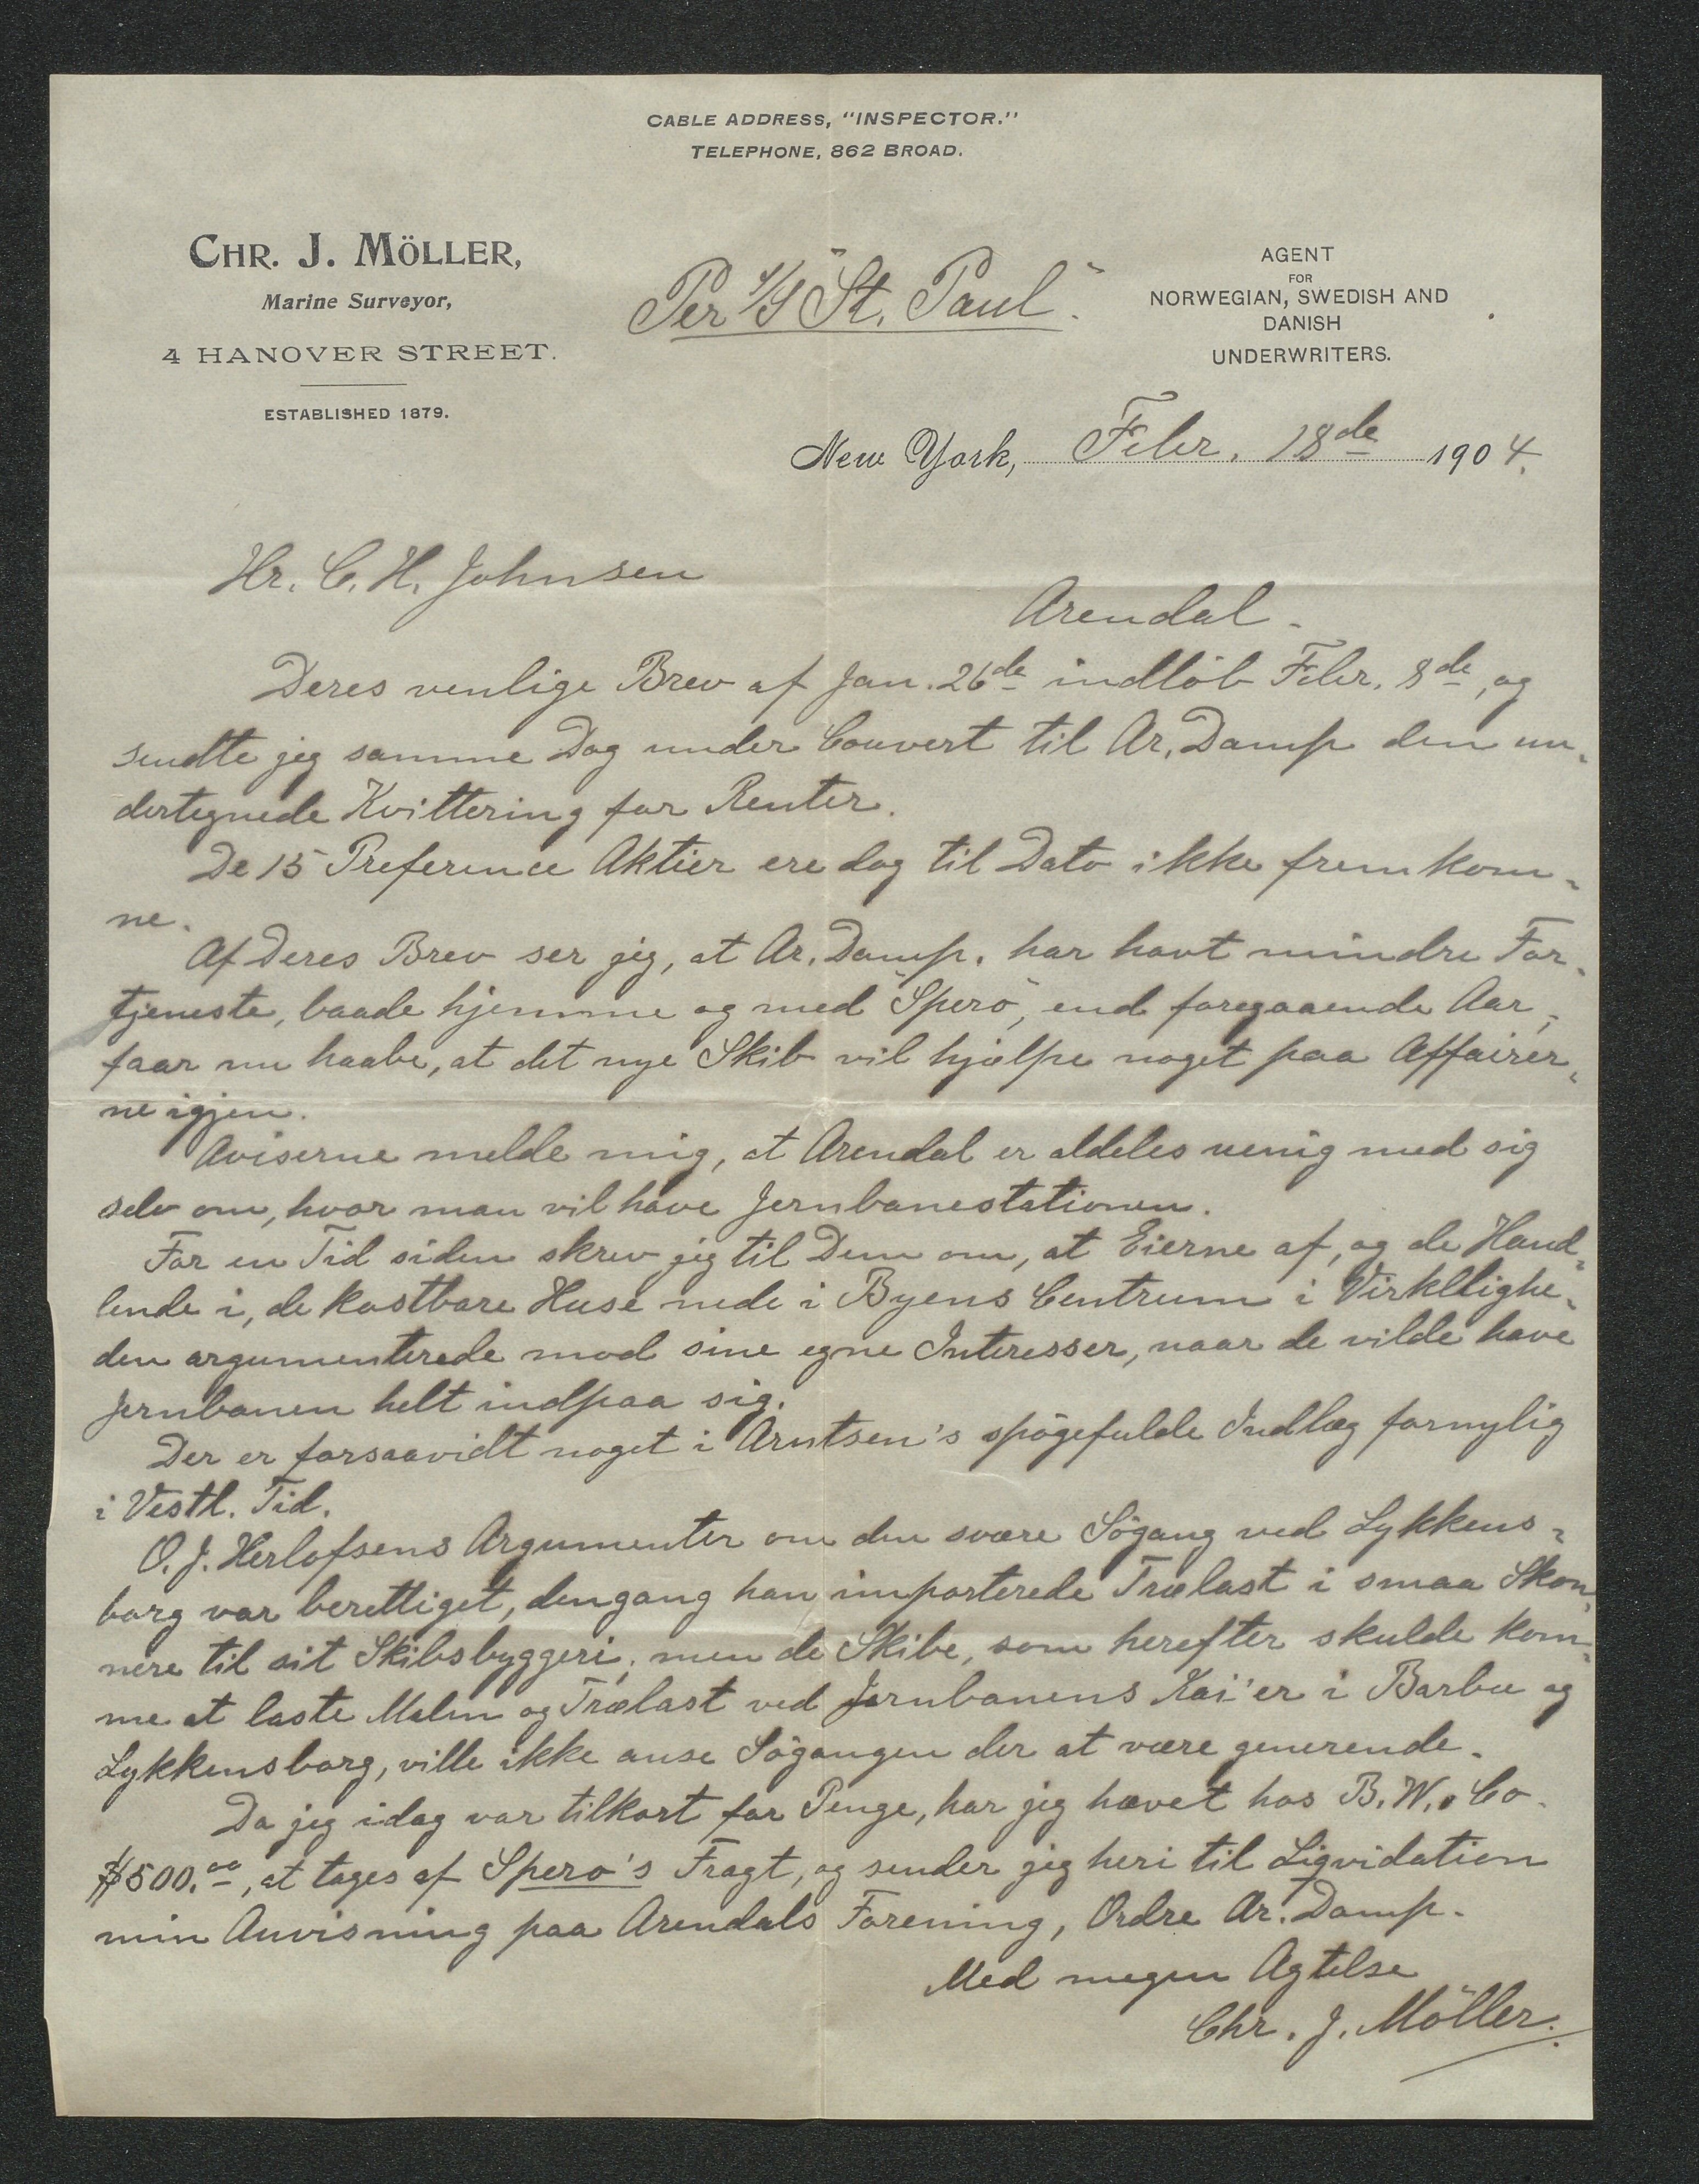 CABLE ADDRESS, "INSPECTOR."
TELEPHONE, 862 BROAD.
CHR. J. MÖLLER,
Marine Surveyor,
4 HANOVER STREET.
ESTABLISHED 1879.
Per S/S "St. Paul".
AGENT
FOR
NORWEGIAN, SWEDISH AND
DANISH
UNDERWRITERS.
New York, Febr. 18de 1904.
Hr. C. H. Johnsen
Arendal.
Deres venlige Brev af Jan. 26de indlöb Febr. 8de, og
sendte jeg samme Dag under Couvert til Ar. Damp den un-
dertegnede Kvittering for Renter.
De 15 Preference Aktier ere dog til Dato ikke fremkom-
ne.
Af Deres Brev ser jeg, at Ar. Damp. har havt mindre For-
tjeneste, baade hjemme og med "Spero", end foregaaende Aar,
faar nu haabe, at det nye Skib vil hjælpe noget paa Affairer-
ne igjen.
Aviserne melde mig, at Arendal er aldeles uenig med sig
selv om, hvor man vil have Jernbanestationen.
For en Tid siden skrev jeg til Dem om, at Eierne af, og de Hand-
lende i, de kostbare Huse nede i Byens Centrum i Virkllighe-
den argumenterede mod sine egne Interesser, naar de vilde have
Jernbanen helt indpaa sig.
Der er forsaavidt noget i Arntsen's spögefulde Indlæg fornylig
i Vestl. Tid.
O. J. Herlofsens Argumenter om den svære Sögang ved Lykkens-
borg var berettiget, dengang han importerede Trælast i smaa Skon-
nere til sit Skibsbyggeri; men de Skibe, som herefter skulde kom-
me at laste Malm og Trælast ved Jernbanens Kai'er i Barbu og
Lykkensborg, ville ikke anse Sögangen der at være generende.
Da jeg idag var tilkort for Penge, har jeg hævet hos B. W. & Co.
$500.00, at tages af Spero's Fragt, og sender jeg heri til Liqvidation
min Anvisning paa Arendals Forening, Ordre Ar. Damp.
Med megen Agtelse
Chr. J. Möller.